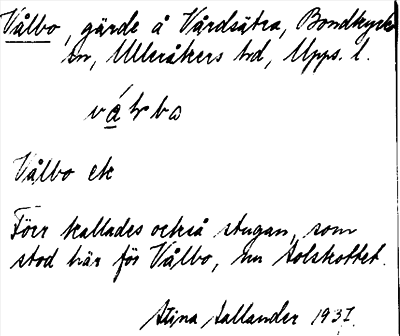 Vålbo, gärde å Vårdsätra, Bondkyrko
sn, Ulleråkers hd, Upps. l.
Vålbo ek
Förr kallades också stugan, som
stod här för Vålbo, nu Solskottet.
Stina Sallander 1931.